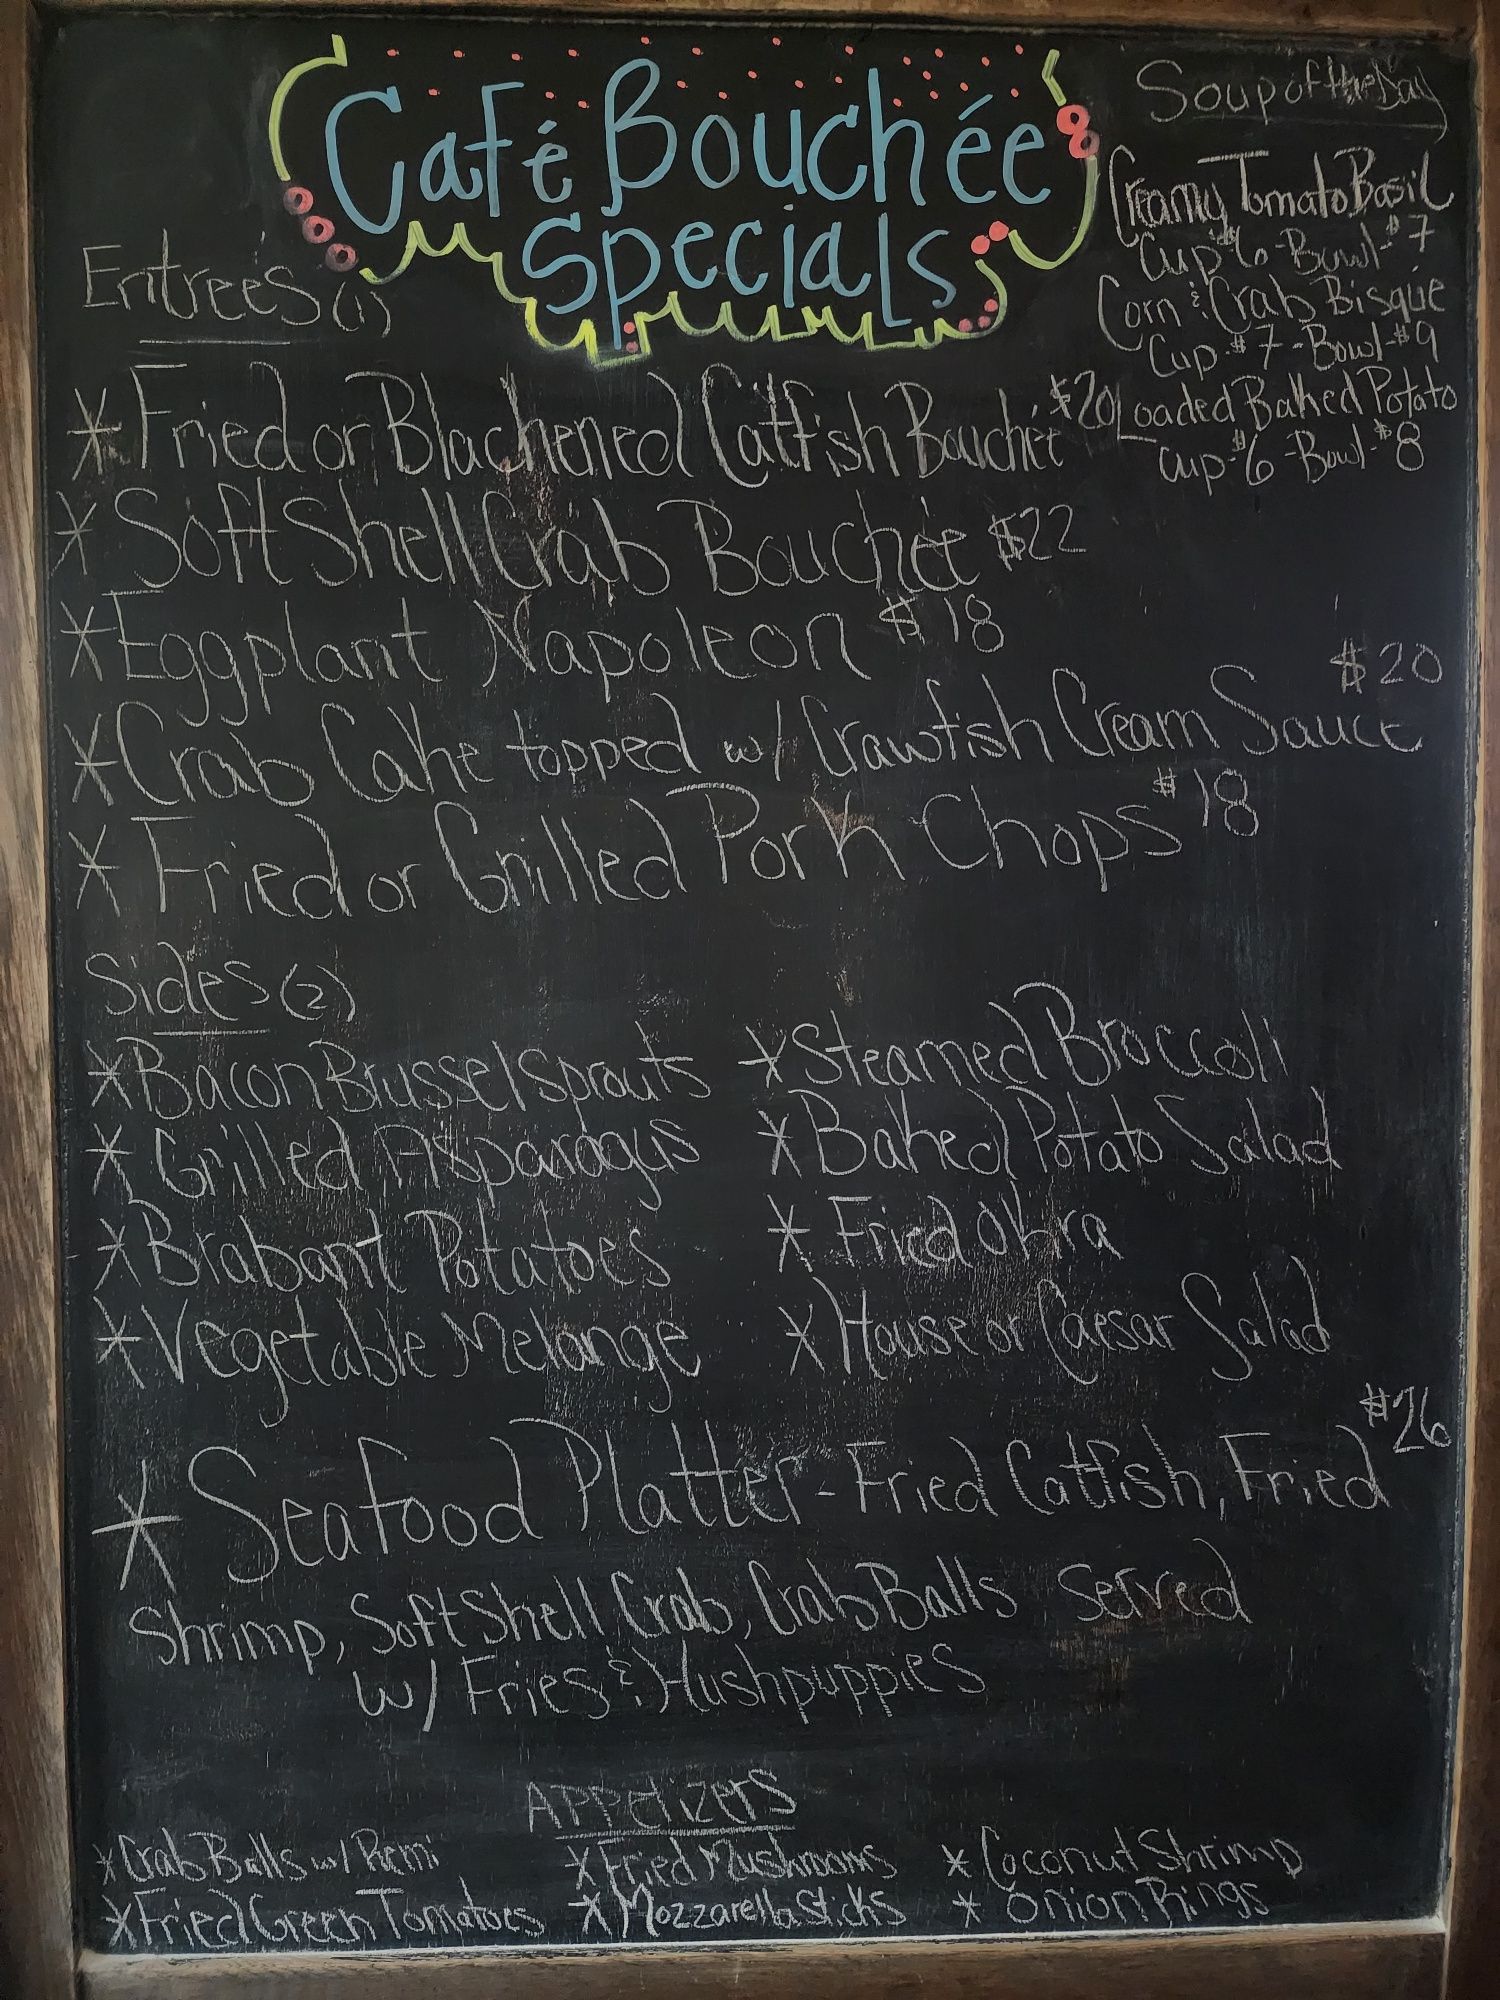 Café Bouchée
Specials
Soup of the Day
Creamy Tomato Basil
Cup $6 - Bowl - $7
Corn & Crab Bisque
Cup - $7 - Bowl - $9
Loaded Baked Potato
Cup - $6 - Bowl - $8
Entrees (1)
* Fried or Blackened Catfish Bouchée $20
* Soft Shell Crab Bouchée $22
* Eggplant Napoleon $18
* Crab Cake topped w/ Crawfish Cream Sauce $20
* Fried or Grilled Pork Chops $18
Sides (2)
* Bacon Brussel Sprouts
* Grilled Asparagus
* Brabant Potatoes
* Vegetable Melange
* Steamed Broccoli
* Baked Potato Salad
* Fried Okra
* House or Caesar Salad
* Seafood Platter - Fried Catfish, Fried $26
Shrimp, Soft Shell Crab, Crab Balls served
w/ Fries & Hushpuppies
Appetizers
* Crab Balls w/ Remi
* Fried Mushrooms
* Coconut Shrimp
* Fried Green Tomatoes
* Mozzarella Sticks
* Onion Rings